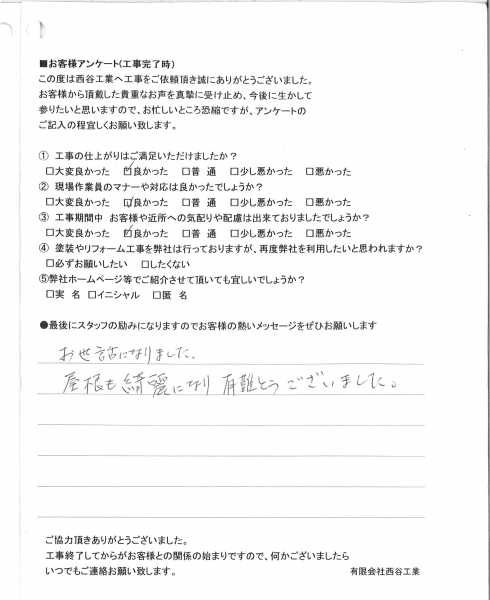 ■お客様アンケート(工事完了時)
この度は西谷工業へ工事をご依頼頂き誠にありがとうございました。
お客様から頂戴した貴重なお声を真摯に受け止め、今後に生かして
参りたいと思いますので、お忙しいところ恐縮ですが、アンケートの
ご記入の程宜しくお願い致します。
① 工事の仕上がりはご満足いただけましたか?
□大変良かった ☑良かった □普 通 □少し悪かった □悪かった
② 現場作業員のマナーや対応は良かったでしょうか?
□大変良かった ☑良かった □普 通 □少し悪かった □悪かった
③ 工事期間中 お客様や近所への気配りや配慮は出来ておりましたでしょうか?
□大変良かった ☑良かった □普 通 □少し悪かった □悪かった
④ 塗装やリフォーム工事を弊社は行っておりますが、再度弊社を利用したいと思われますか?
□必ずお願いしたい □したくない
⑤弊社ホームページ等でご紹介させて頂いても宜しいでしょうか?
□実 名 □イニシャル □匿 名
●最後にスタッフの励みになりますのでお客様の熱いメッセージをぜひお願いします
お世話になりました、
屋根も綺麗になり 有難とうございました。
ご協力頂きありがとうございました。
工事終了してからがお客様との関係の始まりですので、何かございましたら
いつでもご連絡お願い致します。 有限会社西谷工業